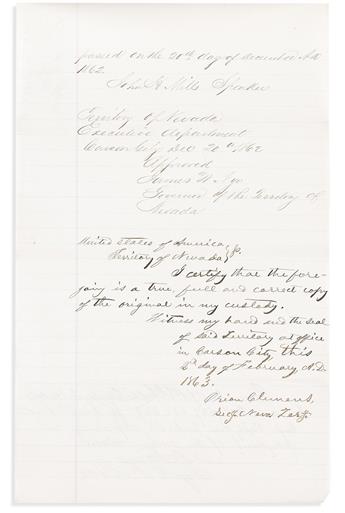 passed on the 20th day of december A.D.
1862.
John H Mills Speaker
Territory of Nevada
Executive department
Carson City Dec 20th 1862
Approved
James W Nye
Governor of the Territory of
Nevada
United States of America
Territory of Nevada
I certify that the fore-
going is a true, full and correct copy
of the original in my custody.
Witness my hand and the seal
of said Territory at office
in Carson City this
day of February A.D.
1863.
Orion Clemens,
Secy Neva Tery.